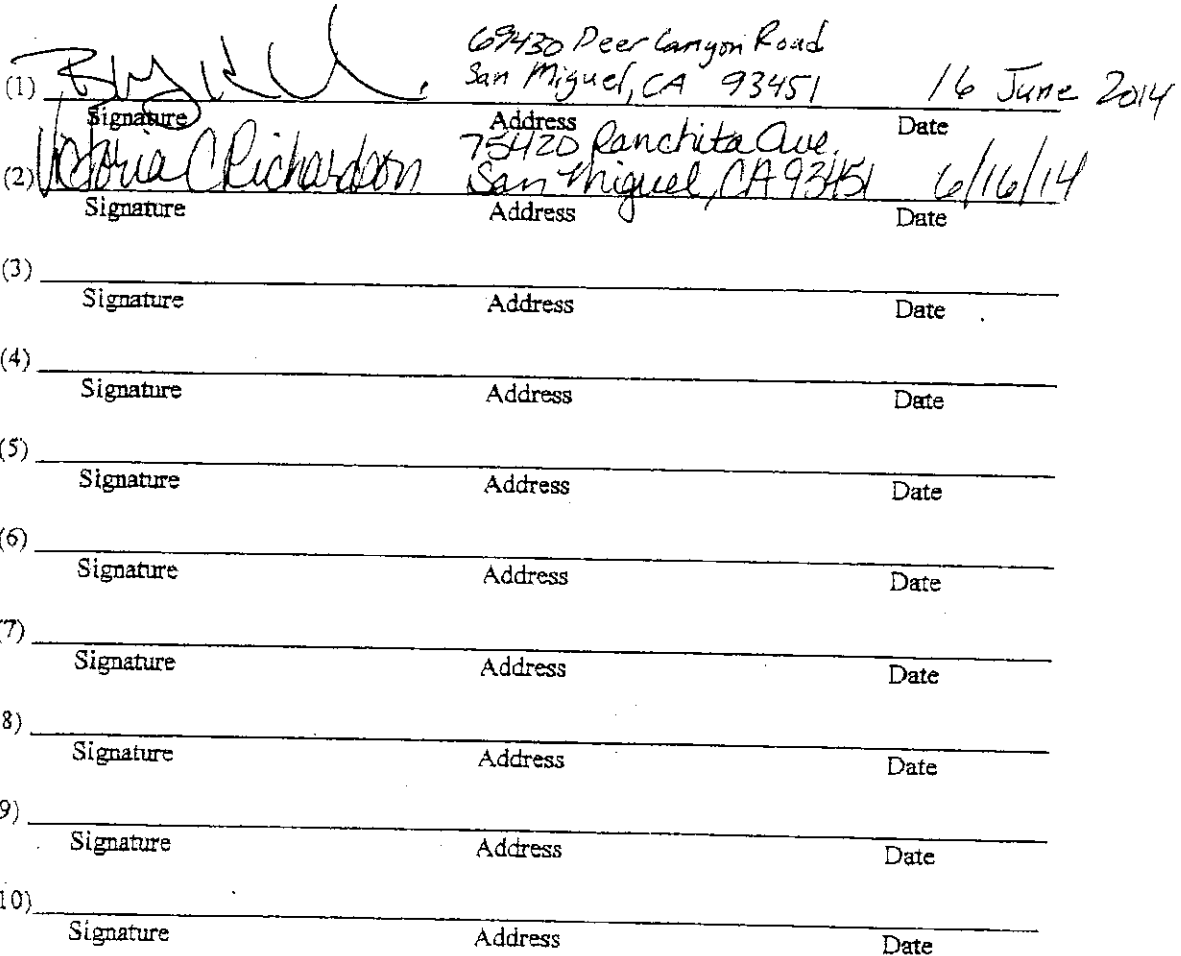 69430 Deer Canyon Road
(1) San Miguel, CA 93451 16 June 2014
Signature Address Date
75420 Ranchita Ave.
(2) Victoria C Richardson San Miguel, CA 93451 6/16/14
Signature Address Date
(3)
Signature Address Date
(4)
Signature Address Date
(5)
Signature Address Date
(6)
Signature Address Date
(7)
Signature Address Date
8)
Signature Address Date
9)
Signature Address Date
10)
Signature Address Date